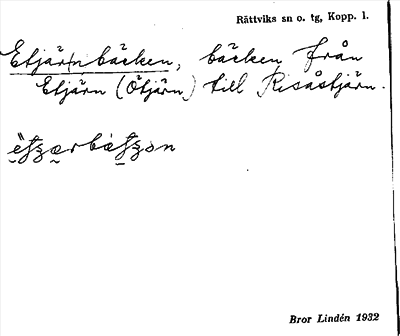 Rättviks sn o. tg, Kopp. l.
Etjär(n)bäcken, bäcken från
Etjärn (Ötjärn) till Risåstjärn.
Bror Lindén 1932